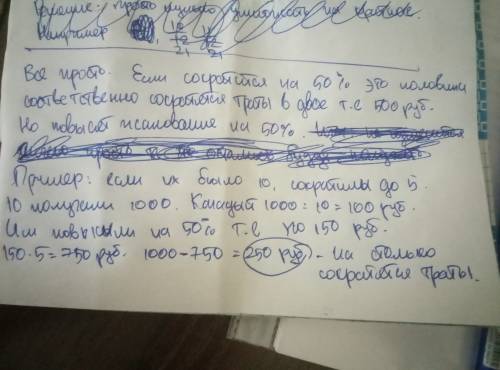 Например 10
12
21 21
Все просто. Если сократится на 50% это половина
соответственно сократятся траты в двое т.е 500 руб.
Но повысят жалование на 50%.
Пример: если их было 10, сократили до 5.
10 получали 1000. Каждый 1000 : 10 = 100 руб.
Им повысили на 50% т.е по 150 руб.
150 · 5 = 750 руб. 1000 - 750 = 250 руб. - на столько
сократятся траты.